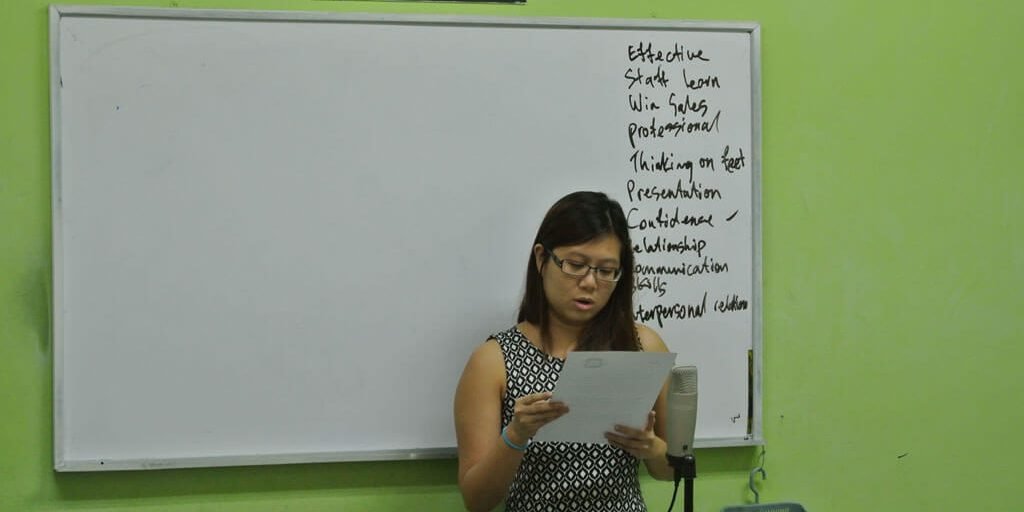 Effective
Staff Learn
Win Sales
professional
Thinking on feet
Presentation
Confidence
elationship
ommunication
skills
terpersonal relation